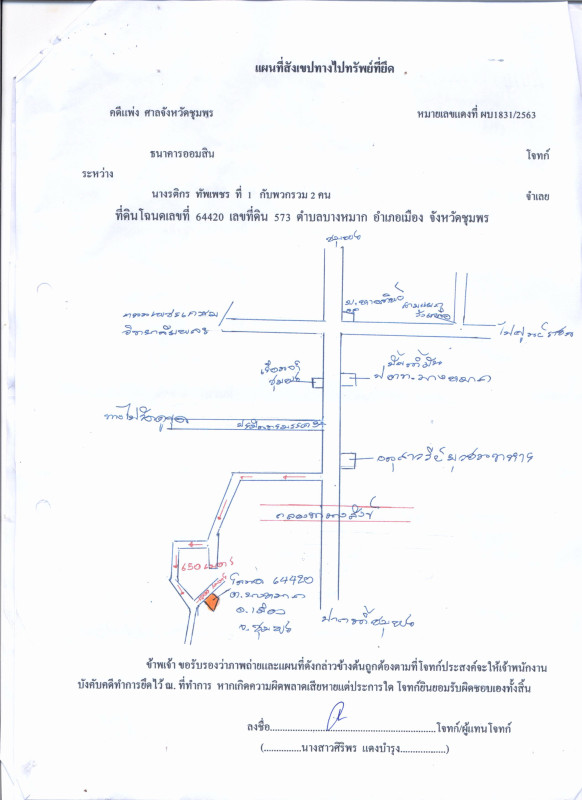 แผนที่สังเขปทางไปทรัพย์ที่ยึด
คดีแพ่ง ศาลจังหวัดชุมพร หมายเลขแดงที่ ผบ1831/2563
ธนาคารออมสิน โจทก์
ระหว่าง
นางรติกร ทัพเพชร ที่ 1 กับพวกรวม 2 คน จำเลย
ที่ดินโฉนดเลขที่ 64420 เลขที่ดิน 573 ตำบลบางหมาก อำเภอเมือง จังหวัดชุมพร
ชุมพร
ถนนเพชรเกษม
เรือนจำ
ชุมพร
ปั๊มน้ำมัน
ปตท. บางหมาก
650 เมตร
โฉนด 64420
ต.บางหมาก
อ.เมือง
จ.ชุมพร
ปากน้ำชุมพร
ข้าพเจ้า ขอรับรองว่าภาพถ่ายและแผนที่ดังกล่าวข้างต้นถูกต้องตามที่โจทก์ประสงค์จะให้เจ้าพนักงาน
บังคับคดีทำการยึดไว้ ณ. ที่ทำการ หากเกิดความผิดพลาดเสียหายแต่ประการใด โจทก์ยินยอมรับผิดชอบเองทั้งสิ้น
ลงชื่อ........................................................โจทก์/ผู้แทนโจทก์
(..............นางสาวศิริพร แดงบำรุง.................)